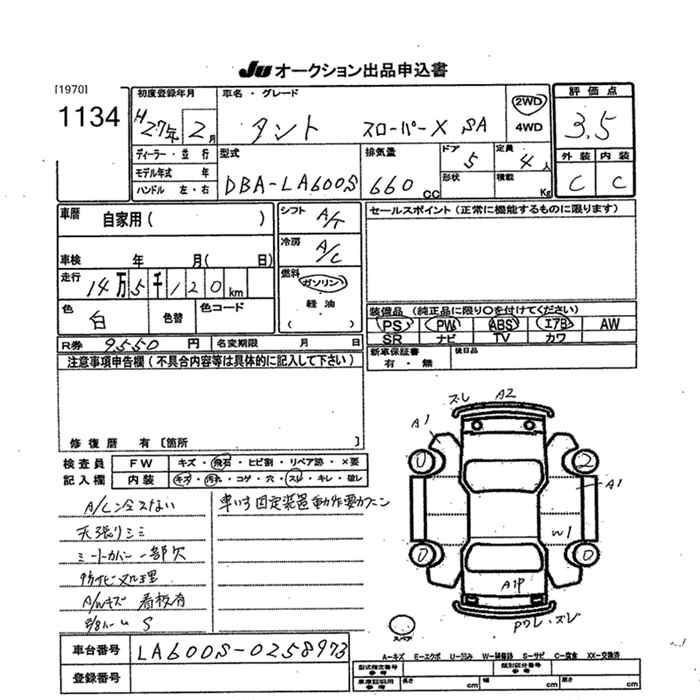 JU オークション出品申込書
[1970]
1134
初度登録年月
H27年 2月
車名・グレード
タント スローパーX SA
2WD
4WD
評価点
3.5
外装 内装
C C
ディーラー・並行
モデル年式 年
ハンドル 左・右
型式
DBA-LA600S
排気量
660 CC
ドア 5
形状
定員 4人
積載 Kg
車歴 自家用( )
車検 年 月( 日)
走行 14万5千120km
色 白 色替 色コード
シフト A/T
冷房 A/C
燃料 ガソリン
軽油
( )
セールスポイント(正常に機能するものに限ります)
装備品 (純正品に限り○を付けてください)
PS PW ABS エアB AW
SR ナビ TV カワ
R券 9550円 名変期限 月 日
新車保証書 有・無 後日品
注意事項申告欄(不具合内容等は具体的に記入して下さい)
修復歴 有[箇所 ]
検査員 FW キズ・飛石・ヒビ割・リペア跡・×要
記入欄 内装 キズ・汚れ・コゲ・穴・スレ・キレ・破レ
A/C冷えない
車いす固定装置動作
天張りシミ
シートカバー一部欠
A/Wキズ 看板有
S
ズレ A2
A1
0 2
A1
W1
0 0
A1P
Pワレ・ズレ
スペア
車台番号 LA600S-0258973
登録番号
A-キズ E-エクボ U-凹み W-補修跡 S-サビ C-腐食 XX-交換済
型式指定番号 参考 類別区分番号 参考
車庫証明用 参考 長さ cm 幅さ cm 高さ cm